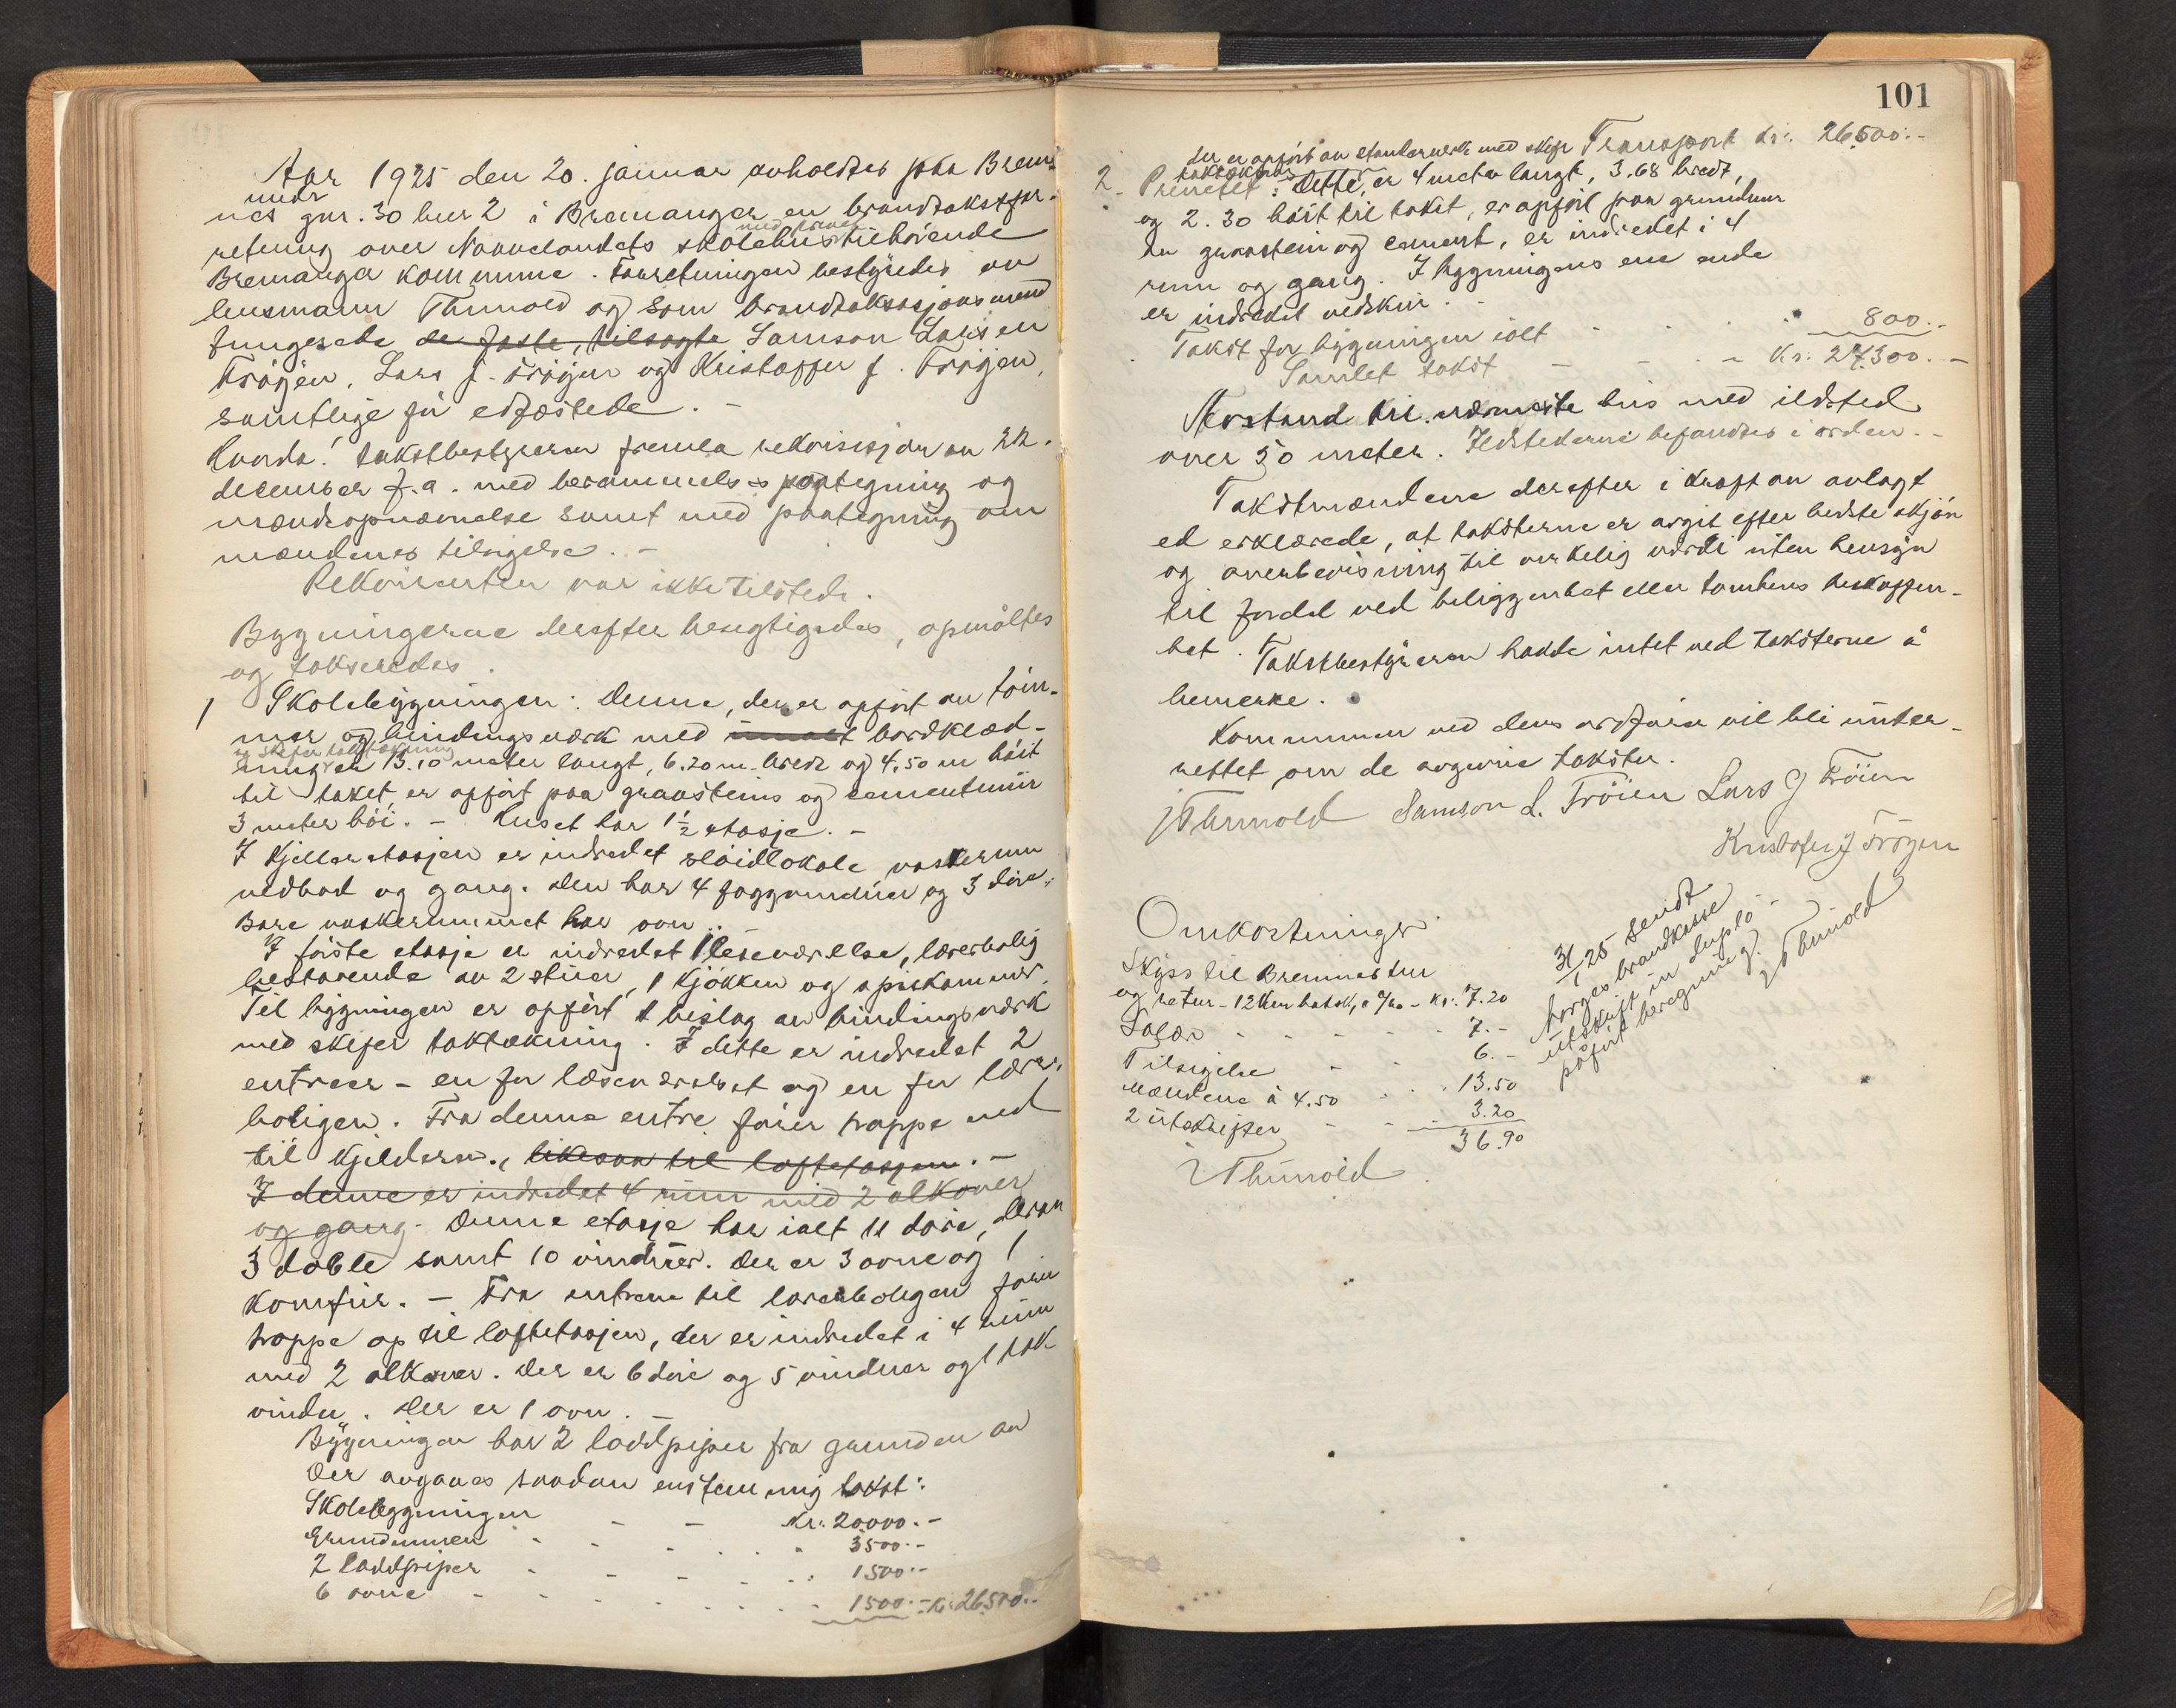 Aar 1925 den 20. januar avholdtes paa Brem-
nes gnr. 30 bnr 2 i Bremanger en brandtakstfor-
retning over Novelandets skolehus med privet tilhörende
Bremanger kommune. Forretningen bestyredes av
lensmann Thunold og som brandtakstsjonsmend
fungerede de faste, tilsagte Samson Larsen
Fröyen, Lars J. Fröyen og Kristoffer J. Fröyen,
samtlige för edfæstede. -
Takstbestyreren fremla rekvisisjon av 22.
desember f.a. med berammelses paategning og
mændsopnævnelse samt med paategning om
mændenes tilsigelse. -
Rekvirenten var ikke tilstede.
Bygningerne derefter besigtigedes, opmåltes
og takseredes.
1 Skolebygningen: Denne, der er opfört av töm-
mer og bindingsverk med umalt bordklæd-
ning og skifer taktækning er 13.10 meter langt, 6.20 m. bredt og 4.50 m höit
til taket, er opfört paa graasteins og cementmur
3 meter höi. - Huset har 1½ etasje. -
I Kjelleretasjen er indredet slöidlokale, vaskerum
vedbod og gang. Den har 4 faggvinduer og 3 döre.
Bare vaskerummet har ovn.
I förste etasje er indredet 1 leseværelse, lærerbolig
bestaaende av 2 stuer, 1 kjökken og spiskammer.
Til bygningen er opfört 1 bislag av bindingsværk
med skifer taktækning. I dette er indredet 2
entreer - en for læseværelset og en for lærer-
boligen. Fra denne entre förer trappe ned
til kjelderen, likesaa til loftetasjen. -
I denne er indredet 4 rum med 2 alkover
og gang. Denne etasje har ialt 11 döre, derav
3 doble samt 10 vinduer. Der er 3 ovne og 1
komfur. - Fra entreen til lærerboligen förer
trappe op til loftetasjen, der er indredet i 4 rum
med 2 alkover. Der er 6 döre og 5 vinduer og 1 tak-
vindu. Der er 1 ovn. -
Bygningen har 2 loddpiper fra grunden av
Der avgaves saadan enstemmig takst:
Skolebygningen - - Kr. 20000.-
Grundmuren - - 3500.-
2 loddpiper - - 1500.-
6 ovne - - 1500.- Kr. 26500.-
101
Transport kr. 26500.-
der er opfört av stenderverk med skifer taktækning
2. Privetet: Dette, er 4 meter langt, 3.68 bredt,
og 2.30 höit til taket, er opfört paa grundmur
av graastein og cement, er indredet i 4
rum og gang. I bygningens ene ende
er indredet vedskur. -
Takst for bygningen ialt - - 800.-
Samlet takst - - Kr. 27300.-
Avstand til nærmeste hus med ildsted
over 50 meter. Ildstederne befandtes i orden. -
Takstmændene derefter i kraft av avlagt
ed erklærede, at taksterne er avgit efter bedste skjön
og overbevisning til virkelig værdi uten hensyn
til fordel ved beliggenhet eller tomtens beskaffen-
het. Takstbestyreren hadde intet ved taksterne å
bemerke.
Kommunen ved dens ordförer vil bli under-
rettet om de avgivne takster.
J Thunold Samson L. Fröien Lars J Fröien
Kristofer J Fröyen
Omkostninger
Skyss til Bremnes tur
og retur - 12 km - kr. 7.20
Salær - - 7.-
Tilsigelse - - 6.-
Mændene à 4.50 - - 13.50
2 utskrifter - - 3.20
36.90
J Thunold
31/1 25 sendt
Norges brandkasse
utskrift in duplo -
påfört beregning.
J Thunold